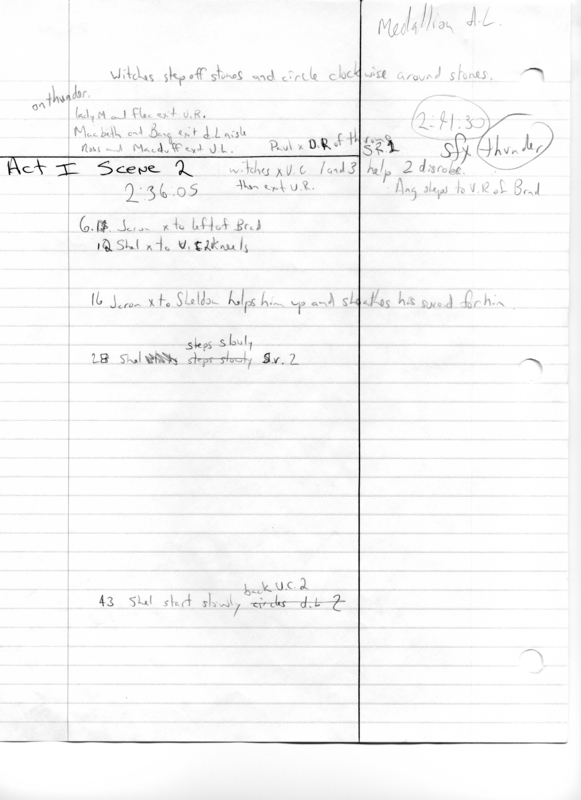 Medallion D.L.
Witches step off stones and circle clockwise around stones.
on thunder.
Lady M and Flea exit U.R.
Macbeth and Banq exit d.L aisle
Ross and Macduff exit U.L.
Paul x D.R of throne
2:41:30
SR 1
sfx thunder
Act I Scene 2
witches x U.C 1 and 3 help 2 disrobe.
then exit U.R.
2:36.05
Ang steps to U.R of Brad
6. Jaron x to left of Brad
10 Shel x to kneels
16 Jaron x to Sheldon helps him up and sheathes his sword for him.
steps slowly
28 Shel steps slowly S.r. 2
back U.C. 2
43 Shel start slowly circles d.L 2